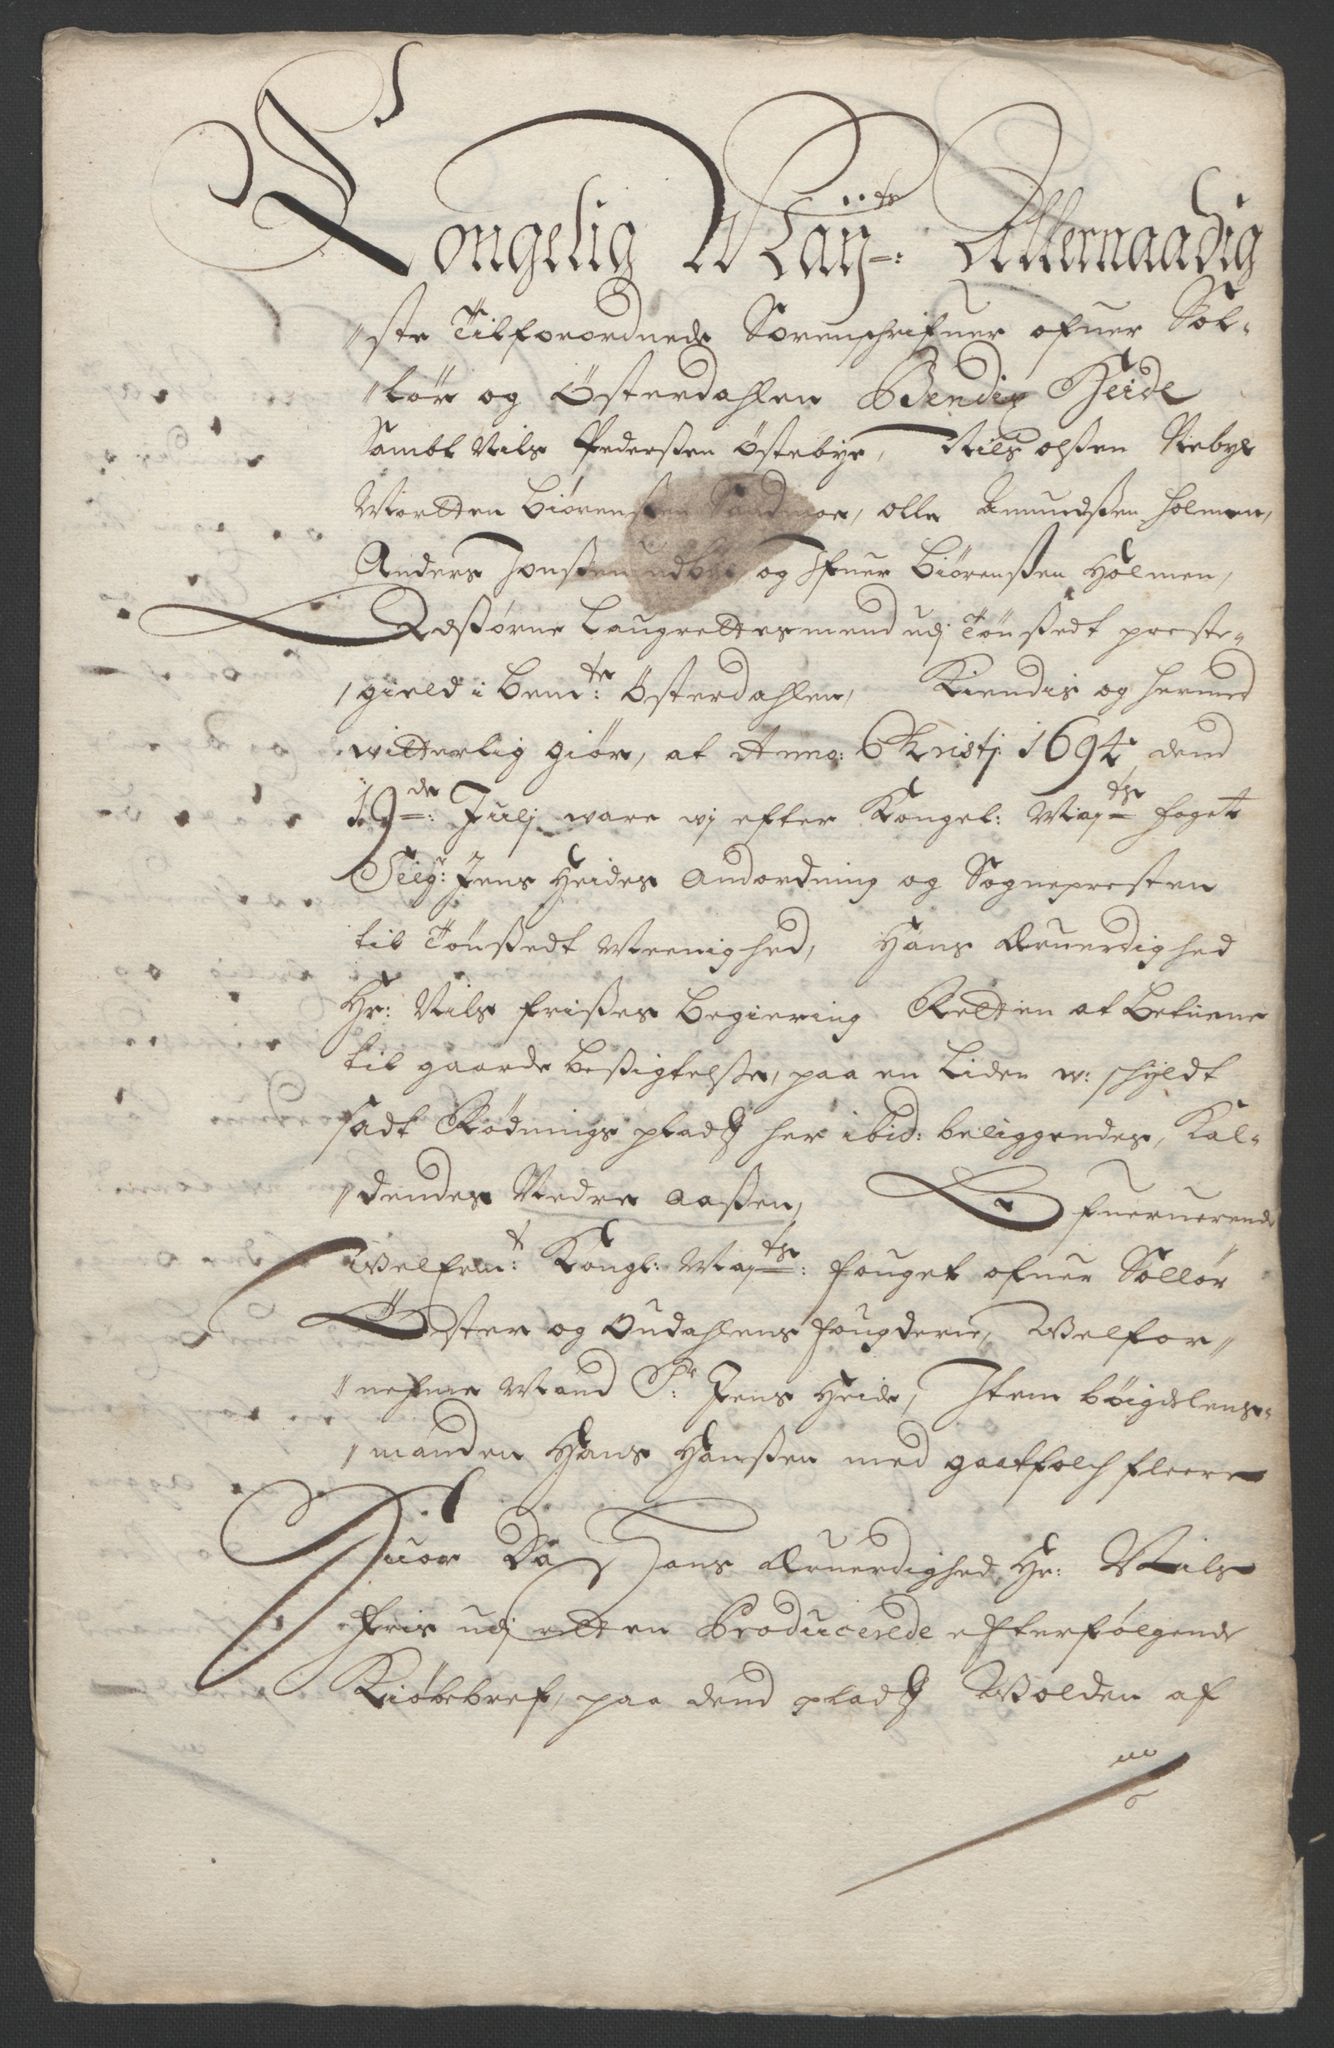 Kongelig Maÿ:ts Allernaadig
//ste Tilforordnede Sorenschrifuer ofuer Sol-
//lør og Østerdahlen Bendix Heide
Sambt Nils Pederßen Østebye, Nils olßen Nebye
Mortten Biørenßen Sandmoe, olle Amundßen holmen,
Anders Jonßen udbye og Ifuer Biørenßen Holmen,
Edsorne Laugrettesmend udj Tønßedt preste-
/gield i bem:te Østerdahlen, Kiendis og hermed
witterlig giør, at Anno: Christj 1694 dend
19:de Julj ware wj efter Kongel: May:ts foget
Seig:r Jens Heides Andordning og Sognepresten
til Tönßedt Meenighed, Hans Ærverdighed
Hr: Nils Frißes begiering Retten at betiene
til gaarde besigtelße, paa en liden u: schyldt
sadt Rødnings pladtz her ibid: beliggendes, Kal-
//dendes Nedre Aaßen, Ofuerverende
Welfem:t Kongl: May:ts: fouget ofuer Sollør
Øster og Oudahlens fougderie, Welfor-
//nehme Mand S:r Jens Heide, Item bøigdelens-
/manden Hans Hanßen med gaatfolch fleere
Huor Da Hans Ærverdighed Hr: Nils
Friis udj retten Producerede efterfølgende
Kiøbebref, paa dend pladtz Wolden af